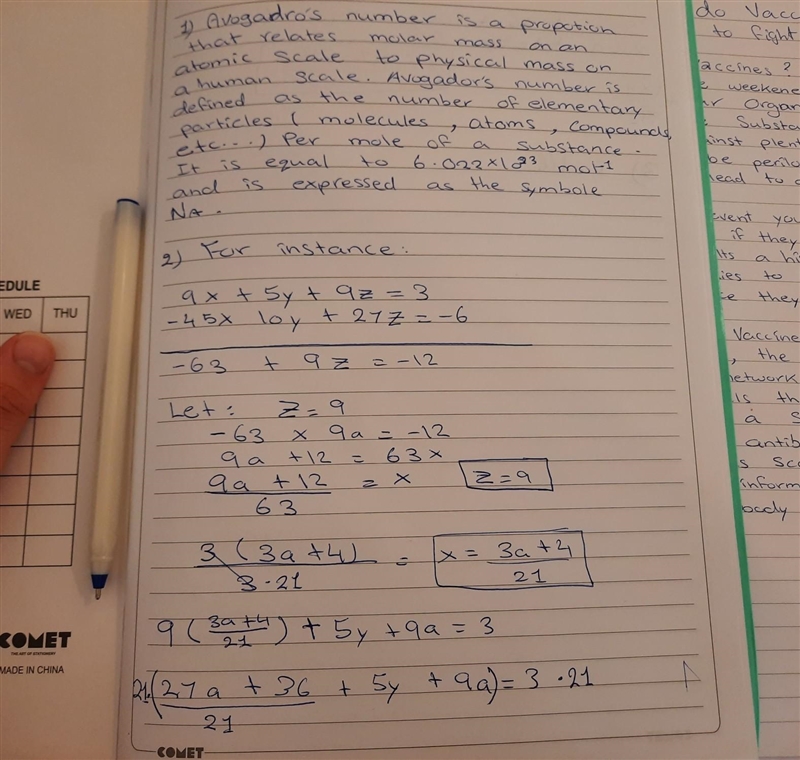 1) Avogadro's number is a propotion
that relates molar mass on an
atomic scale to physical mass on
a human scale. Avogador's number is
defined as the number of elementary
particles ( molecules , atoms , compounds,
etc...) Per mole of a substance.
It is equal to 6.022×10²³ mol⁻¹
and is expressed as the symbole
NA.
2) For instance:
9x + 5y + 9z = 3
-45x 10y + 27z = -6
-63 + 9z = -12
Let: z = 9
-63 x 9a = -12
9a + 12 = 63x
9a + 12 = x z = 9
63
3 (3a + 4) = x = 3a + 4
3 · 21 21
9 ( 3a + 4 ) + 5y + 9a = 3
21
21. ( 27a + 36 + 5y + 9a) = 3 · 21
21
COMET
EDULE
WED THU
COMET
THE ART OF STATIONERY
MADE IN CHINA
do Vacc
to fight
accines ?
weekene
ar Organ
Substa
inst plent
be perilo
lead to
event you
if they
Its a hi
ies to
e they
Vaccine
, the
network
is th
a s
antib
s sc
inform
body